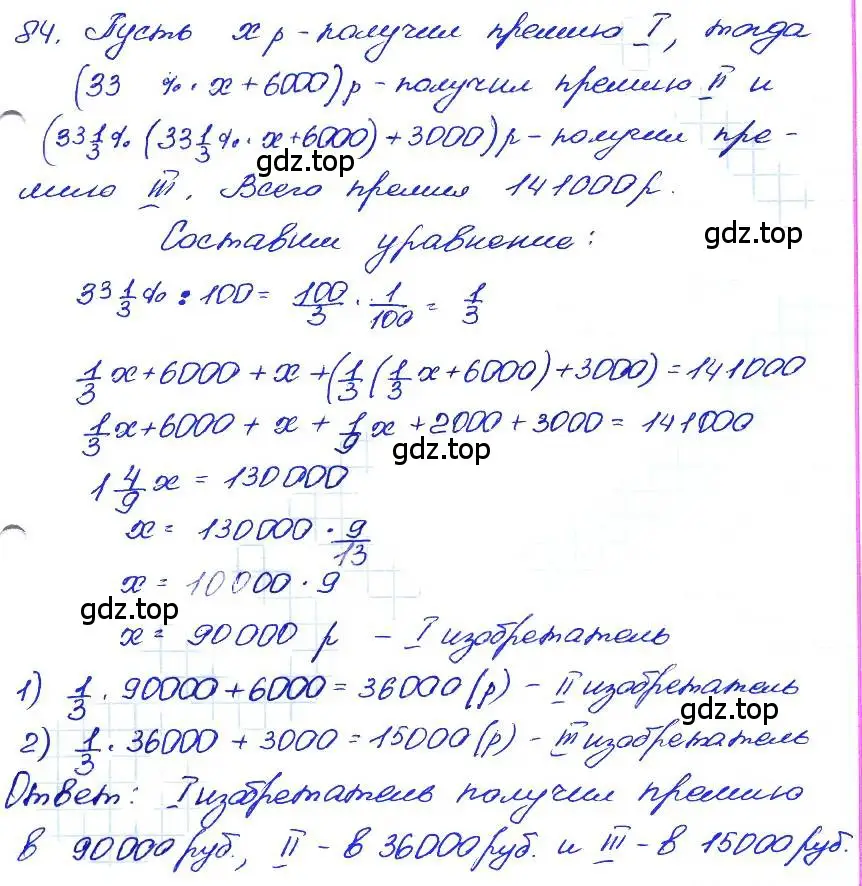 84. Пусть x р - получил премию I, тогда
(33 %·x+6000)р - получил премию II и
(33 1/3 % (33 1/3 %·x+6000)+3000)р - получил пре-
gdz.top
мию III. Всего премия 141000р.
Составим уравнение:
gdz.top
33 1/3 % : 100 = 100/3 · 1/100 = 1/3
1/3 x+6000 + x + (1/3 (1/3 x+6000)+3000) = 141000
1/3 x+6000 + x + 1/9 x +2000+3000 = 141000
gdz.top
1 4/9 x = 130000
x = 130000 · 9/13
x = 10000 · 9
gdz.top
x = 90000 р - I изобретатель
1) 1/3 · 90000+6000 = 36000 (р) - II изобретатель
gdz.top
2) 1/3 · 36000 + 3000 = 15000 (р) - III изобретатель
Ответ: I изобретатель получил премию
в 90000 руб., II - в 36000 руб. и III - в 15000 руб.